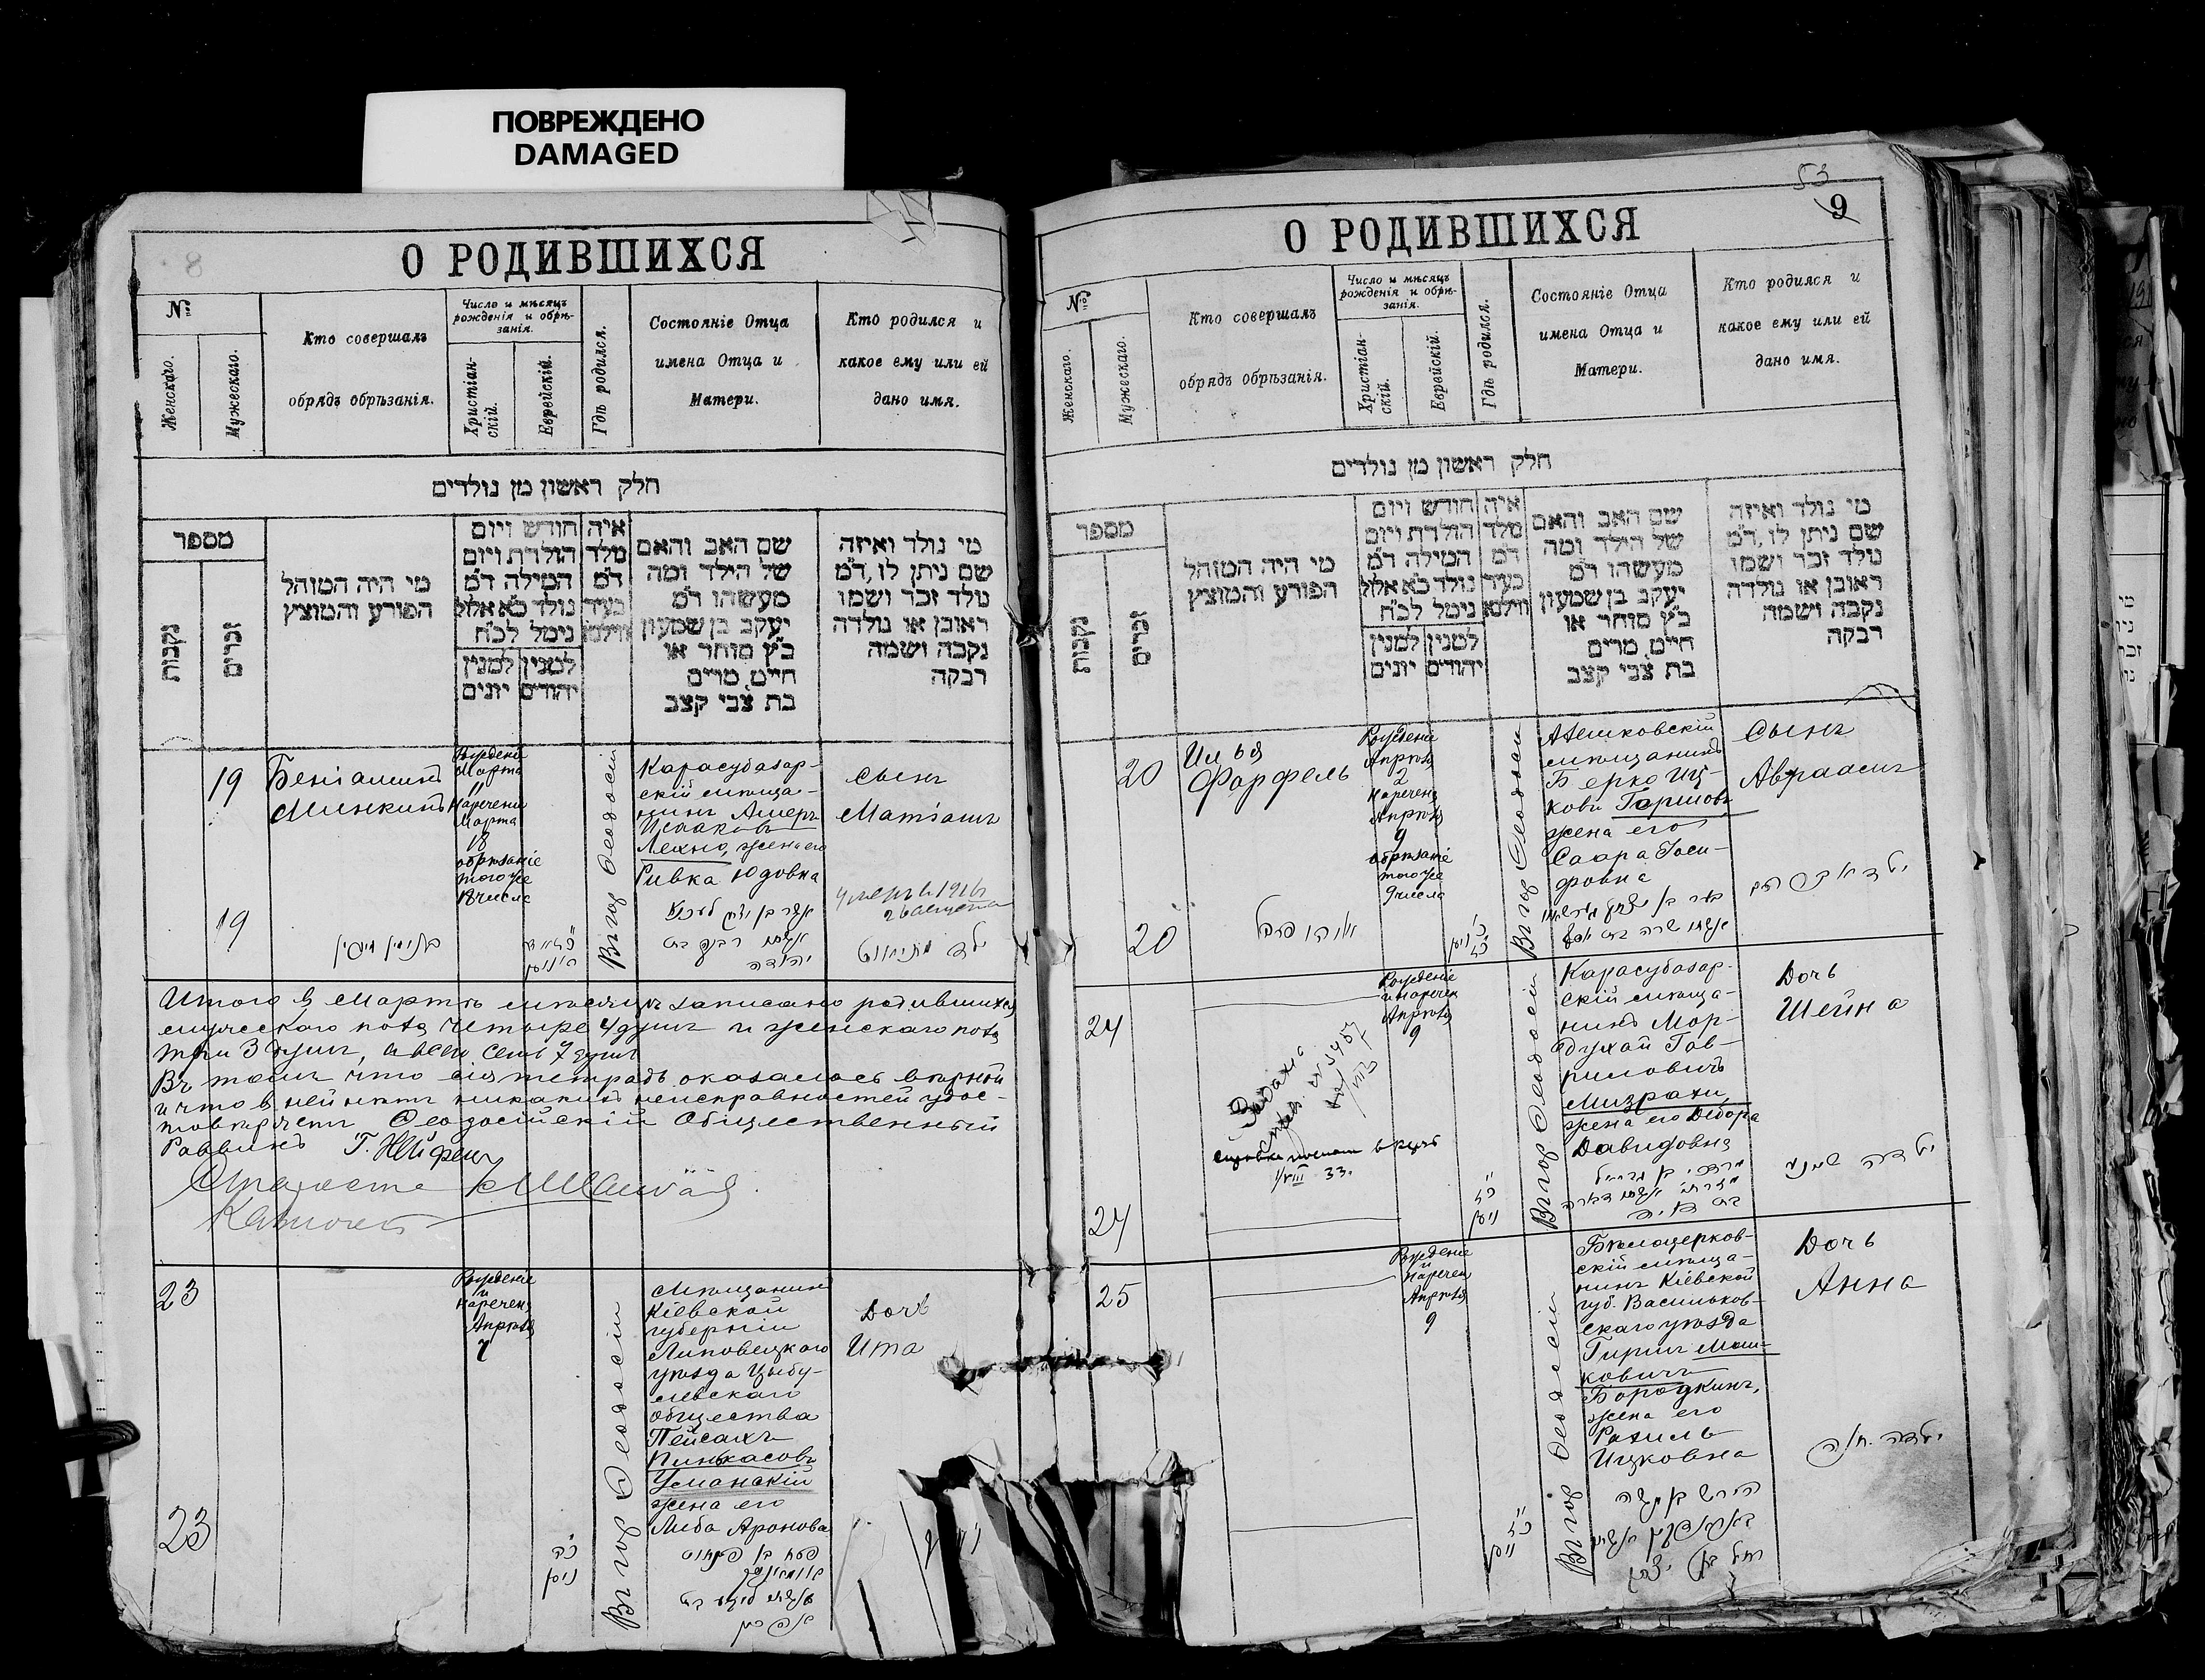 ПОВРЕЖДЕНО
DAMAGED
8
О РОДИВШИХСЯ
№
Женскаго.
Мужескаго.
Кто совершалъ
обрядъ обрѣзанія.
Число и мѣсяцъ
рожденія и обрѣ-
занія.
Христіан-
скій.
Еврейскій.
Гдѣ родился.
Состояніе Отца
имена Отца и
Матери.
Кто родился и
какое ему или ей
дано имя.
חלק ראשון מן נולדים
מספר
נקבות
זכרים
מי היה המוהל
הפורע והמוצץ
חודש ויום
הולדת ויום
המילה ד״מ
נולד כ״א אלול
נימל לכ״ח
למנין למנין
יהודים יונים
איה
מלד
ד״מ
בעיר
ווילנא
שם האב והאם
של הילד ומה
מעשהו ד״מ
יעקב בן שמעון
כ״ץ סוחר או
חייט, מרים
בת צבי קצב
מי נולד ואיזה
שם ניתן לו, ד״מ
נולד זכר ושמו
ראובן או נולדה
נקבה ושמה
רבקה
19
Беніаминъ
Минкинъ
Рожденіе
Марта
11
Нареченіе
Марта
18
обрѣзаніе
того же
18 числа
Въ гор Ѳеодосіи
Карасубазар-
скій мѣща-
нинъ Ашеръ
Исааковъ
Лехно, жена его
Ривка Юдовна
сынъ
Матіашъ
19
יהודה
Итого въ Мартѣ мѣсяцѣ записано родившихся
мужескаго пола четыре 4 душъ и женскаго пола
три 3 душъ, а всего семь 7 душъ
Въ томъ что сія тетрадь оказалась вѣрной
и что въ ней нѣтъ никакихъ неисправностей удос-
товѣряетъ Ѳеодосійскій Общественный
Раввинъ
23
Рожденіе
и
Наречен
Апрѣля
7
Въ гор Ѳеодосіи
Мѣщанинъ
Кіевской
губерніи
Липовецкаго
уѣзда Цыбу-
левскаго
общества
Пейсахъ
Пинкасовъ
Уманскій
жена его
Либа Аронова
Дочь
Ита
23
כה
ניסן
53
9
О РОДИВШИХСЯ
№
Женскаго.
Мужескаго.
Кто совершалъ
обрядъ обрѣзанія.
Число и мѣсяцъ
рожденія и обрѣ-
занія.
Христіан-
скій.
Еврейскій.
Гдѣ родился.
Состояніе Отца
имена Отца и
Матери.
Кто родился и
какое ему или ей
дано имя.
חלק ראשון מן נולדים
מספר
נקבות
זכרים
מי היה המוהל
הפורע והמוצץ
חודש ויום
הולדת ויום
המילה ד״מ
נולד כ״א אלול
נימל לכ״ח
למנין למנין
יהודים יונים
איה
מלד
ד״מ
בעיר
ווילנא
שם האב והאם
של הילד ומה
מעשהו ד״מ
יעקב בן שמעון
כ״ץ סוחר או
חייט, מרים
בת צבי קצב
מי נולד ואיזה
שם ניתן לו, ד״מ
נולד זכר ושמו
ראובן או נולדה
נקבה ושמה
רבקה
20
Илья
Фарфель
Рожденіе
Апрѣля
2
Наречен
Апрѣля
9
обрѣзаніе
того же
9 числа
Въ гор Ѳеодосіи
Алешковскій
мѣщанинъ
Берко Иц-
ковъ Гаршовъ
жена его
Саара Іоси-
фовна
Сынъ
Авраамъ
20
24
Рожденіе
и Наречен
Апрѣля
9
Въ гор Ѳеодосіи
Карасубазар-
скій мѣща-
нинъ Мор-
духай Гав-
риловичъ
Мизрахи,
жена его Дебора
Давидовна
Дочь
Шейна
VIII 33.
24
ניסן
25
Рожденіе
и
Наречен
Апрѣля
9
Въ гор Ѳеодосіи
Бѣлоцерков-
скій мѣща-
нинъ Кіевской
губ. Васильков-
скаго уѣзда
Гиршъ Мош-
ковичъ
Бородкинъ,
жена его
Рахиль
Ицковна
Дочь
Анна
ניסן
הירש בן משה
ילדה חנה